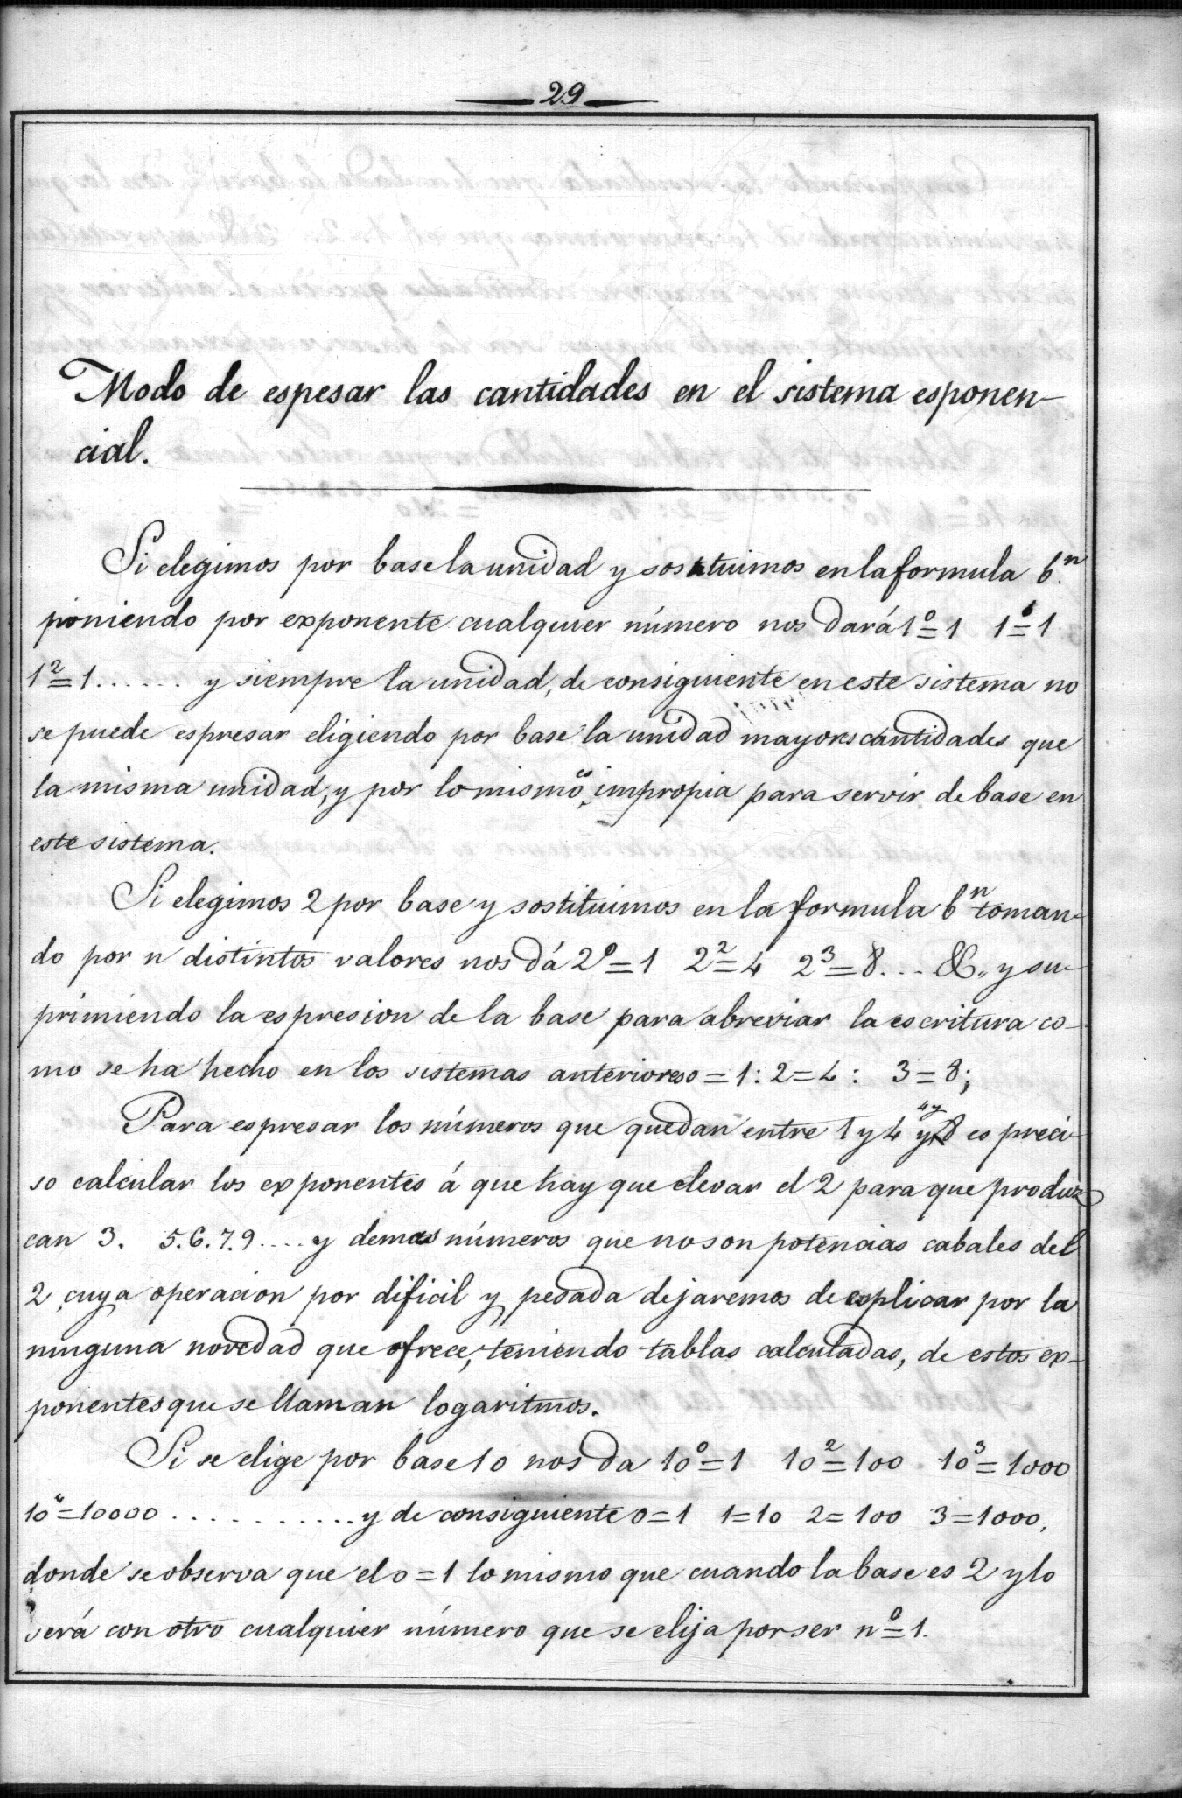 29
Modo de espesar las cantidades en el sistema esponen-
cial.
Si elegimos por base la unidad y sostituimos en la formula bⁿ
poniendo por exponente cualquier número nos dará 1⁰=1 1¹=1
1²=1...... y siempre la unidad, de consiguiente en este sistema no
se puede espresar eligiendo por base la unidad mayores cantidades que
la misma unidad, y por lo mismo es impropia para servir de base en
este sistema.
Si elegimos 2 por base y sostituimos en la formula bⁿ toman-
do por n distintos valores nos dá 2⁰=1 2²=4 2³=8... &c,, y su-
primiendo la espresion de la base para abreviar la escritura co-
mo se ha hecho en los sistemas anteriores 0=1: 2=4: 3=8;
Para espresar los números que quedan entre 1 y 4 y 8 es preci-
so calcular los exponentes á que hay que elevar el 2 para que produz
can 3. 5.6.7.9.... y demas números que no son potencias cabales del
2, cuya operacion por dificil y pesada dejaremos de esplicar por la
ninguna novedad que ofrece, teniendo tablas calculadas, de estos ex-
ponentes que se llaman logaritmos.
Si se elige por base 10 nos da 10⁰=1 10²=100 10³=1000
10⁴=10000 ........... y de consiguiente 0=1 1=10 2=100 3=1000,
donde se observa que el 0=1 lo mismo que cuando la base es 2 y lo
será con otro cualquier número que se elija por ser n⁰=1.